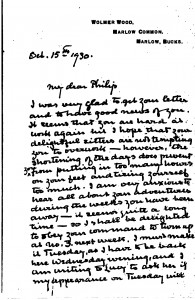 WOLMER WOOD,
MARLOW COMMON,
MARLOW, BUCKS.
Oct. 15th 1930.
My dear Philip
I was very glad to get your letter
and to have good news of you.
It seems that you are hard at
work again but I hope that your
delightful sitters are not tempting
you to overwork — however, the
shortening of the days does prevent
from putting in too many hours
on your feet and tiring yourself
too much. I am very anxious to
hear all about your adventures
during the weeks you have been
away — it seems quite a long
time — so I shall be delighted
to obey your command to turn up
at no. 3 next week. I must make
it Tuesday, as I have to be back
here Wednesday evening, and I
am writing to Lucy to ask her if
my appearance on Tuesday will